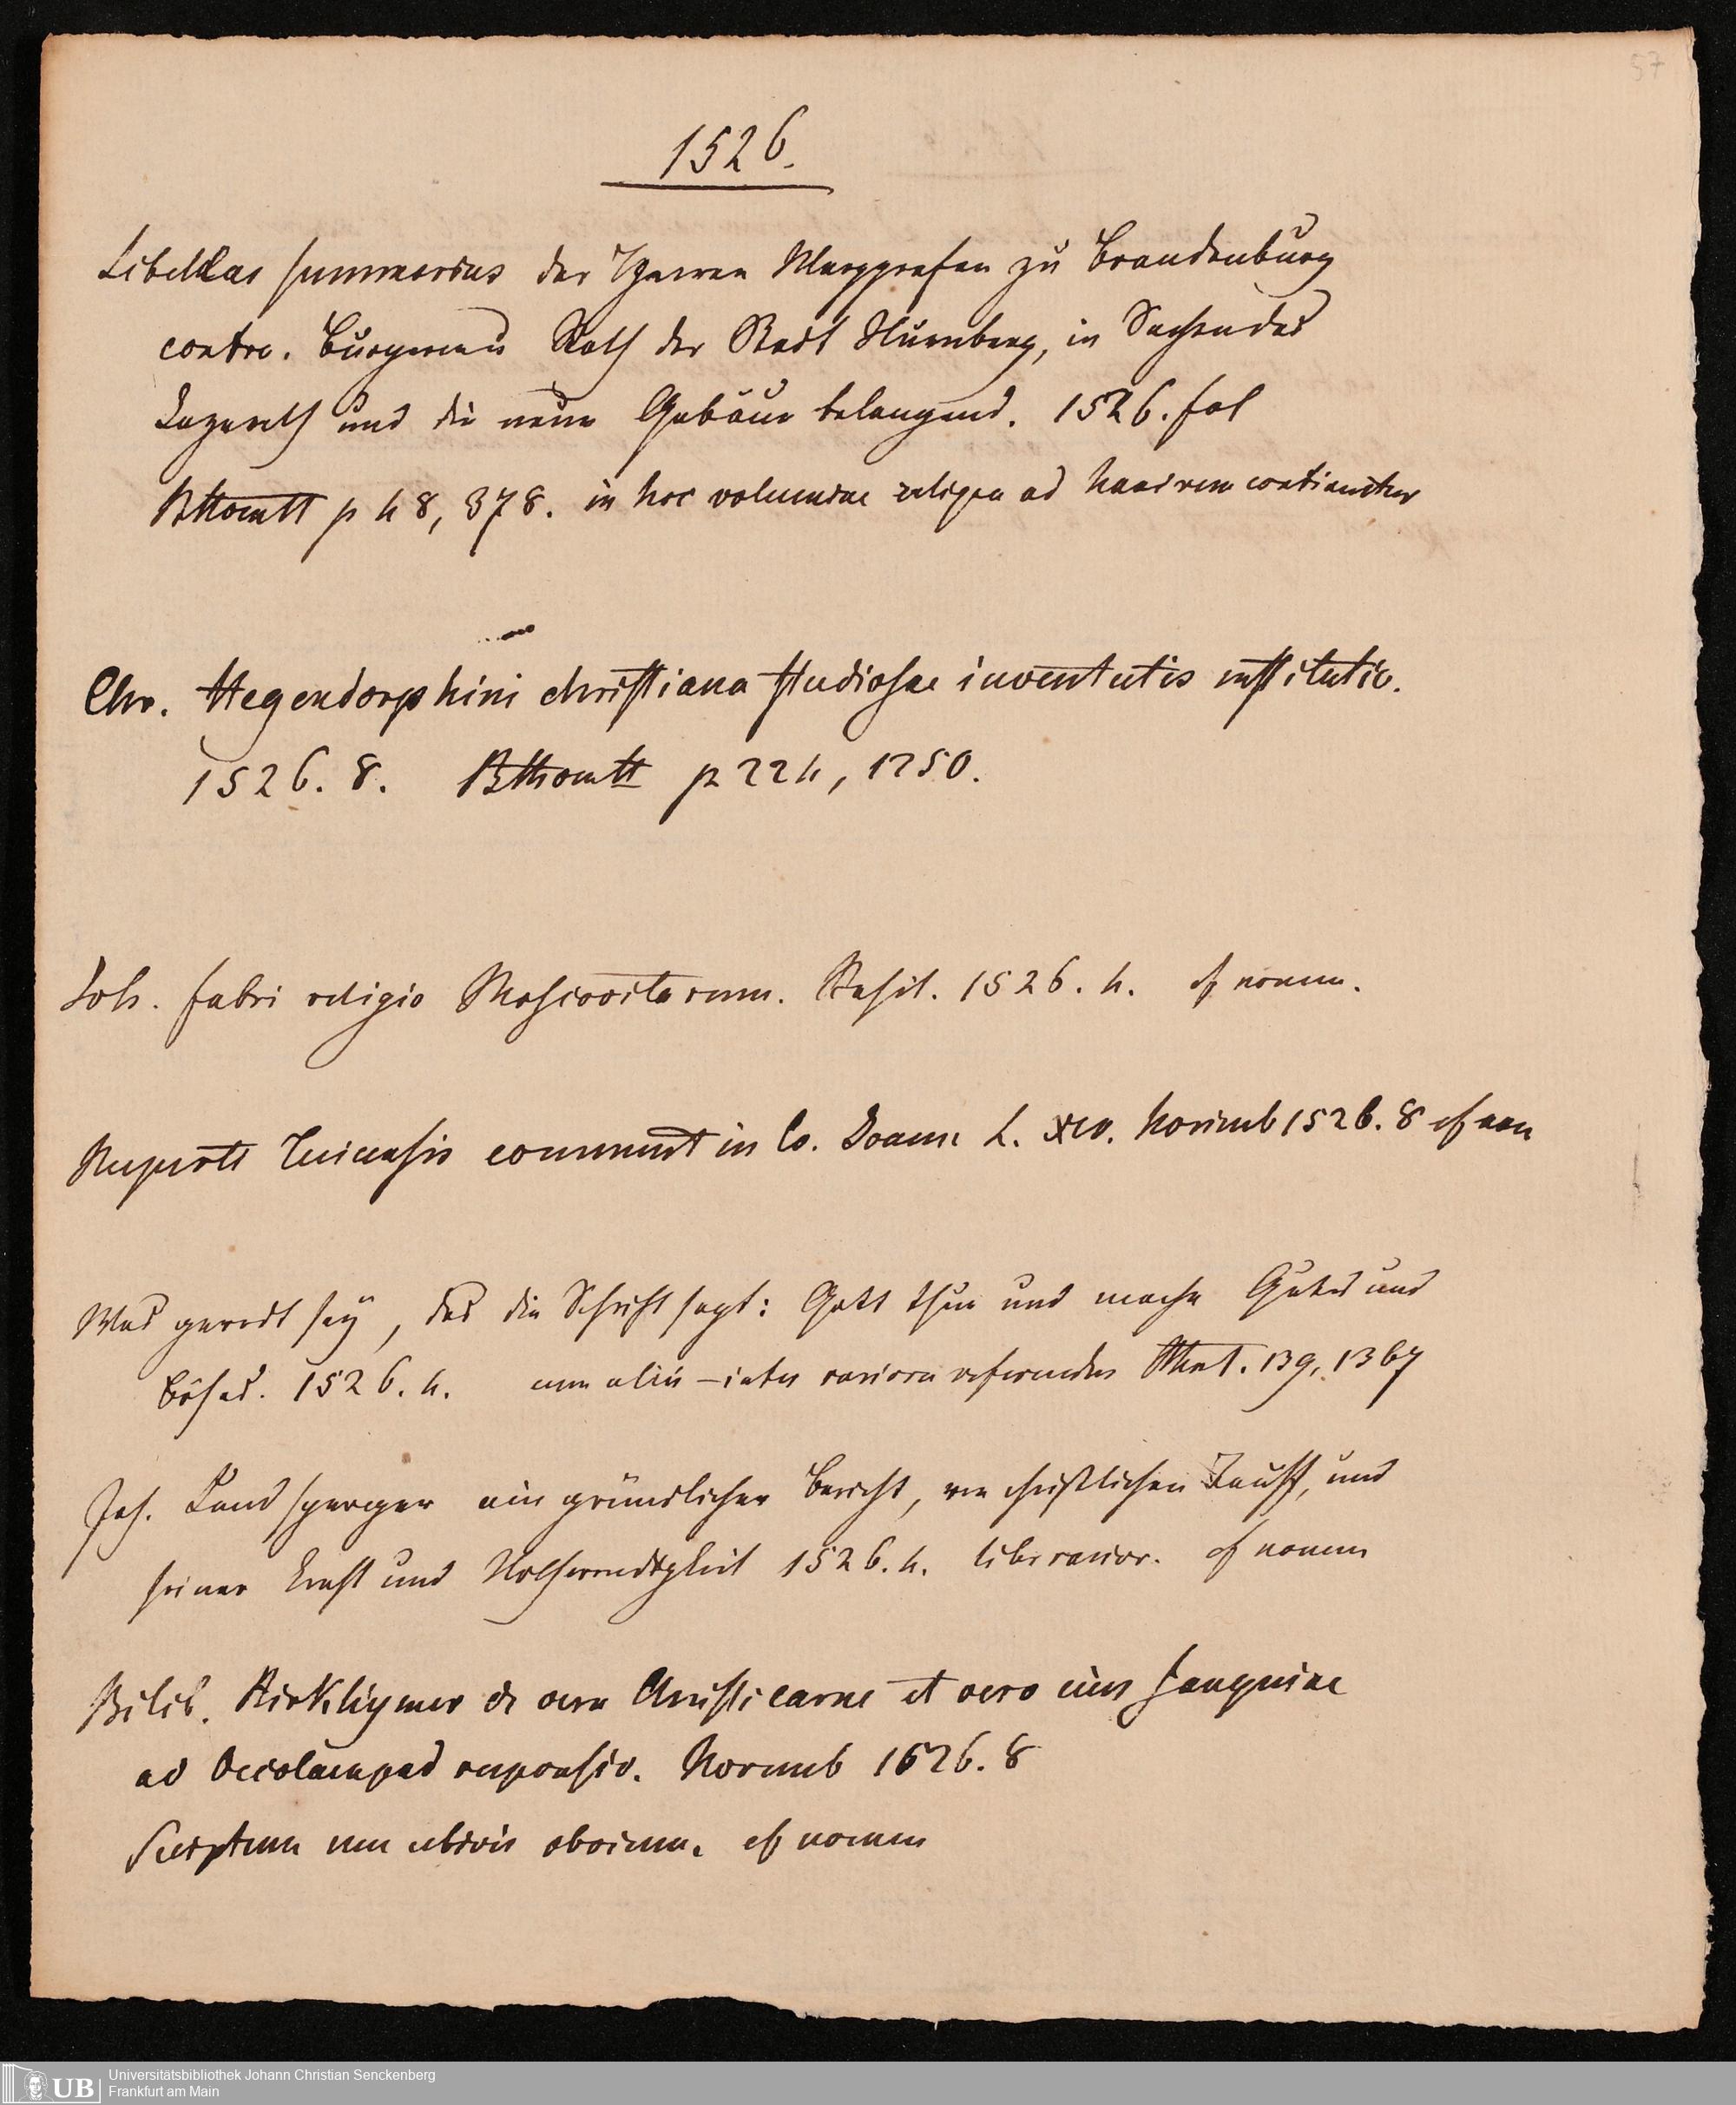 57
1526.
Libellus summarius der Herren Marggrafen zu Brandenburg
contra. Burgerm u Rath der Stadt Nurnberg, in Sachen des
Lazareth und die neue Gebäue belangend. 1526. fol
p 48, 378. in hoc volumine ad hanc rem continentur
Chr. Hegendorphini christiana studiosae iuventutis institutio.
1526. 8. p 224, 1250.
Joh. Fabri religio Moscovitarum. Basil. 1526. 4. cf nomen.
Ruperti Tuicensis comment in Ev. Joann. L. XIV. Norimb 1526. 8 cf nom
Was geredt sey, das die Schrift sagt: Gott thue und mache Gutes und
böses. 1526. 4. cum aliis – inter rariora referendus 139, 1367
Joh. Landsperger ein gründlicher Bericht, von christlichen Tauff, und
seiner Kraft und Nothwendigkeit 1526. 4. liber rarior. cf nomen
Bilib. Pirkheymer de vera Christi carne et vero eius sanguine
ad Oecolampad responsio. Norimb 1526. 8
Scriptum non ubivis obvium. cf nomen
UB
Universitätsbibliothek Johann Christian Senckenberg
Frankfurt am Main